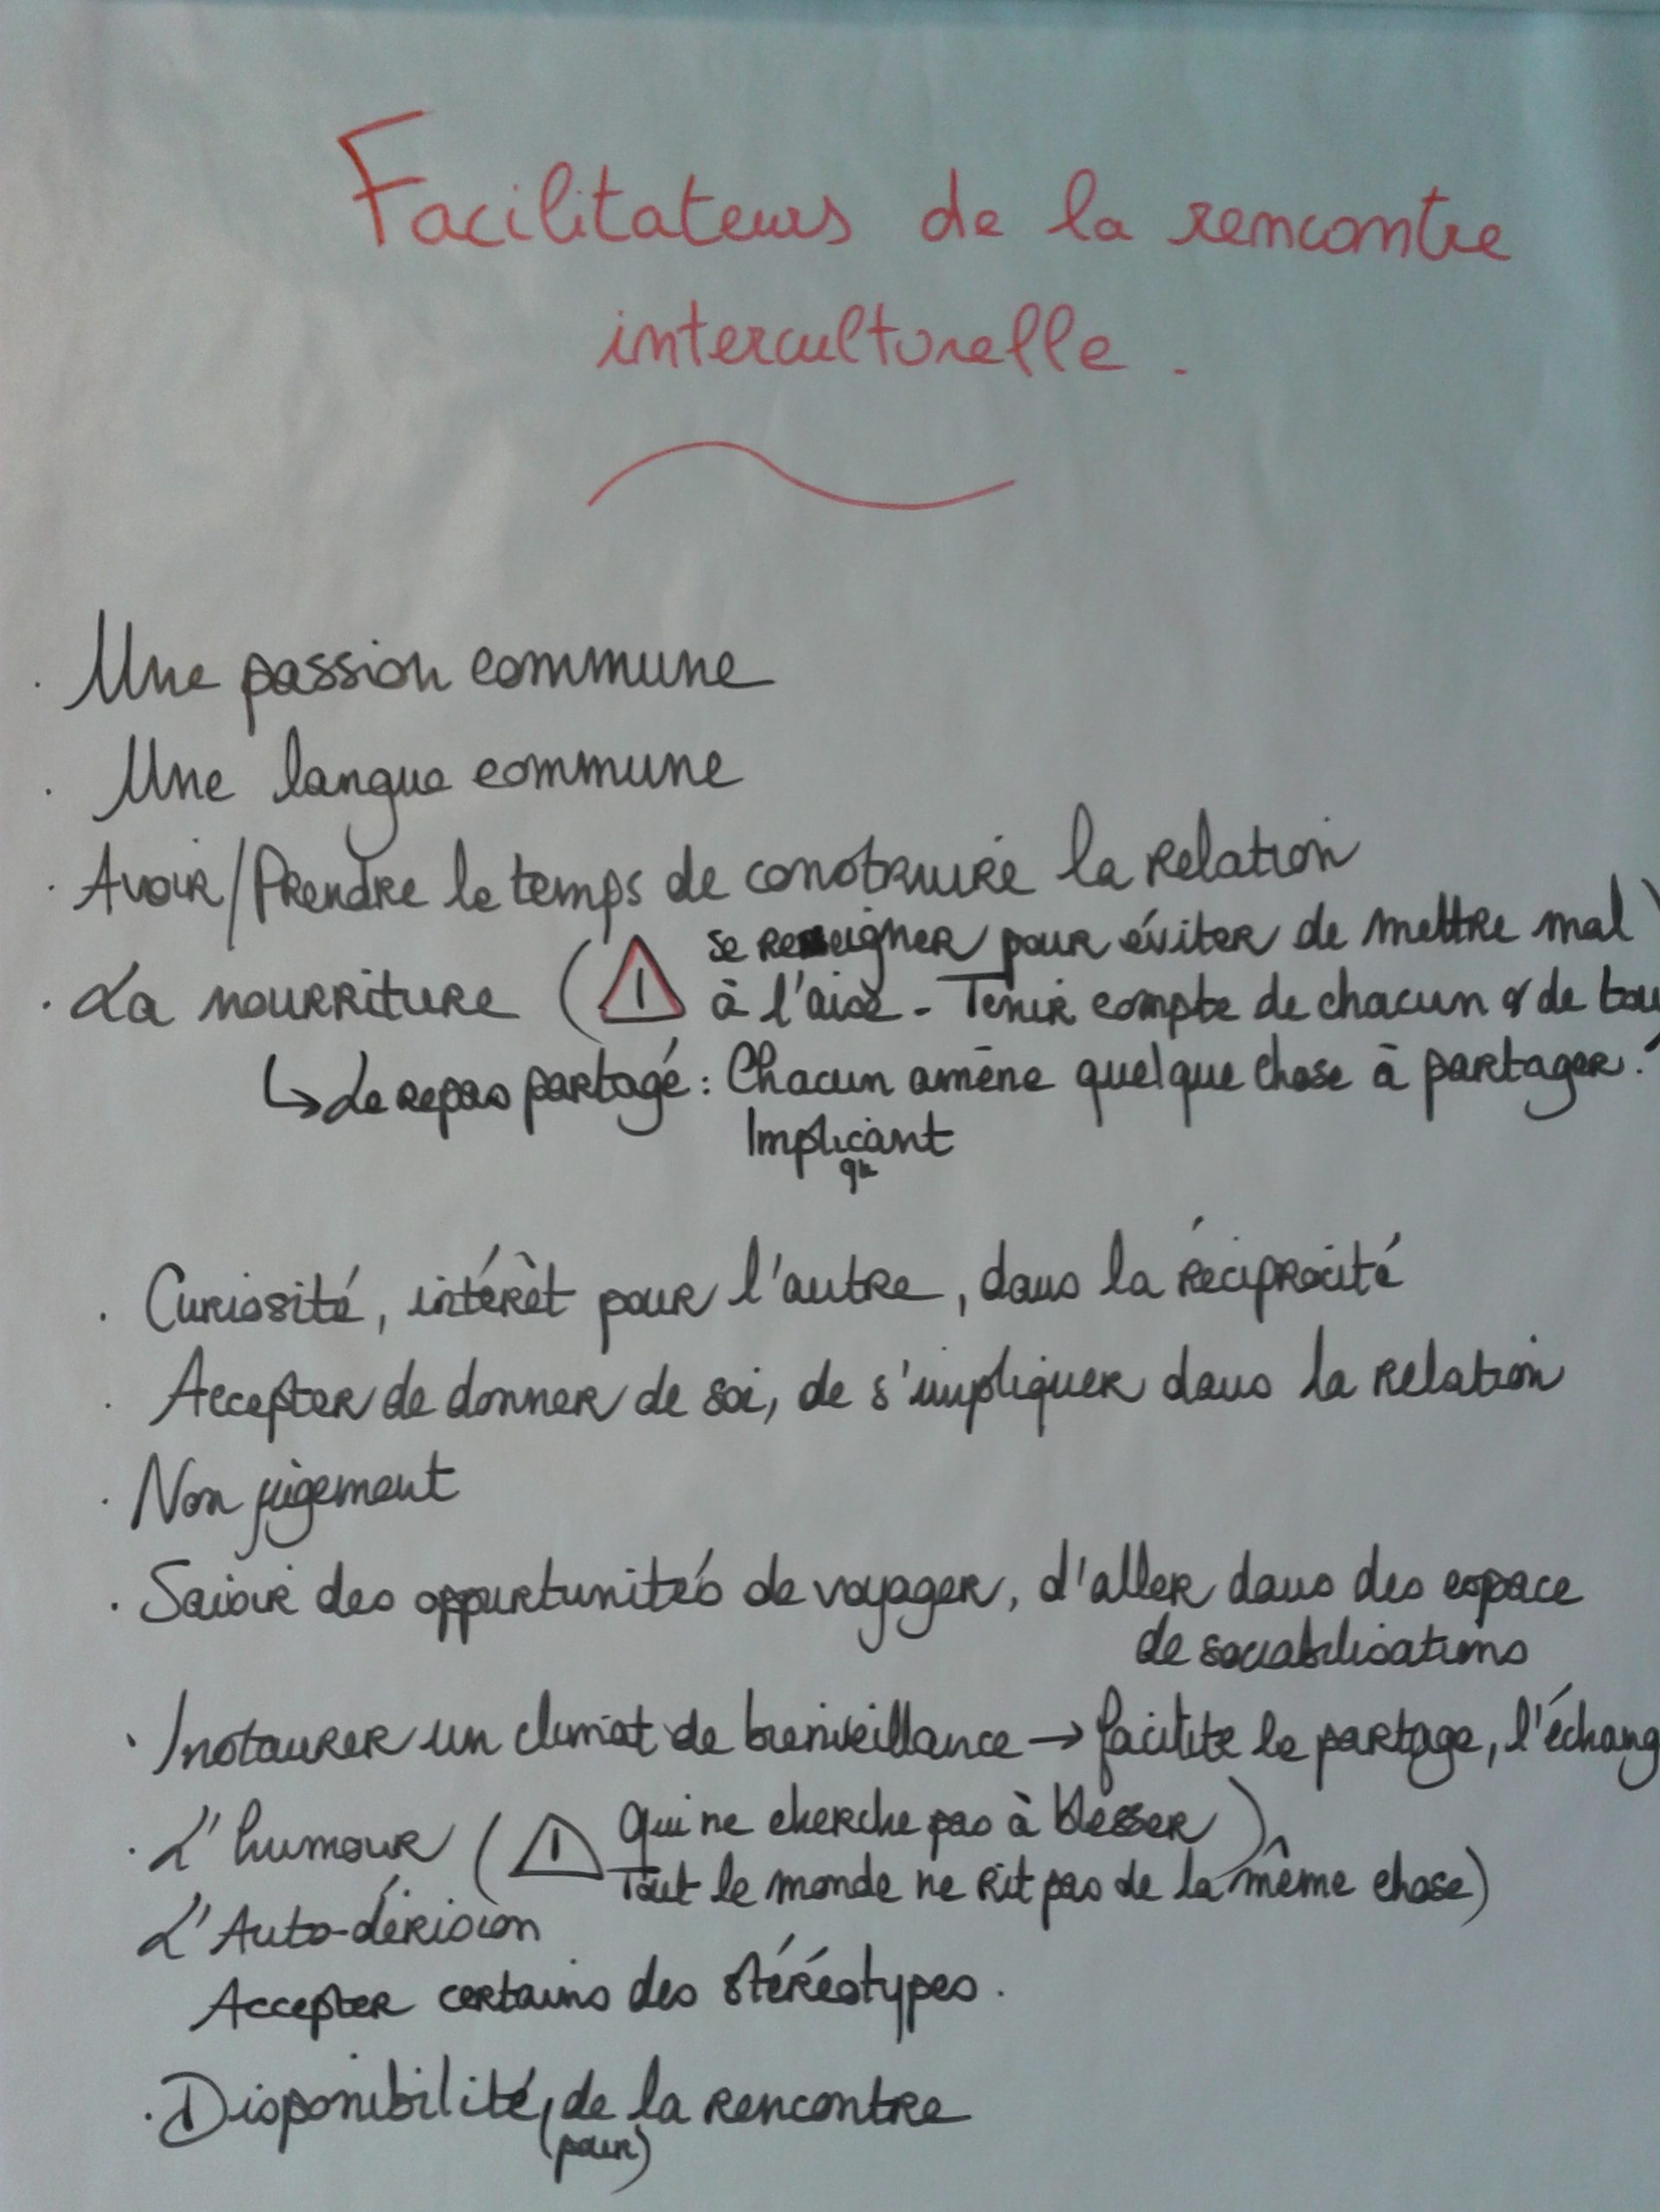 Facilitateurs de la rencontre
interculturelle.
. Une passion commune
. Une langue commune
. Avoir/Prendre le temps de construire la relation
se renseigner pour éviter de mettre mal)
. La nourriture (⚠ à l'aise - Tenir compte de chacun & de tou
↳ Le repas partagé : Chacun amène quelque chose à partager.
Implicant
. Curiosité, intérêt pour l'autre, dans la réciprocité
. Accepter de donner de soi, de s'impliquer dans la relation
. Non jugement
. Saisir des oppurtunités de voyager, d'aller dans des espace
de sociabilisations
. Instaurer un climat de bienveillance → facilite le partage, l'échang
. L'humour (⚠ Qui ne cherche pas à blesser),
Tout le monde ne rit pas de la même chose)
L'Auto-dérision
Accepter certains des stéréotypes.
. Disponibilité, de la rencontre
(pour)